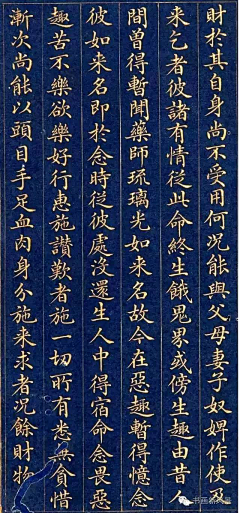 財於其自身尚不受用何況能與父母妻子奴婢作使及
来乞者彼諸有情從此命終生餓鬼界或傍生趣由昔人
間曾得暫聞藥師琉璃光如来名故今在惡趣暫得憶念
彼如来名即於念時從彼處沒還生人中得宿命念畏惡
趣苦不樂欲樂好行惠施讚歎者施一切所有悉無貪惜
漸次尚能以頭目手足血肉身分施来求者況餘財物